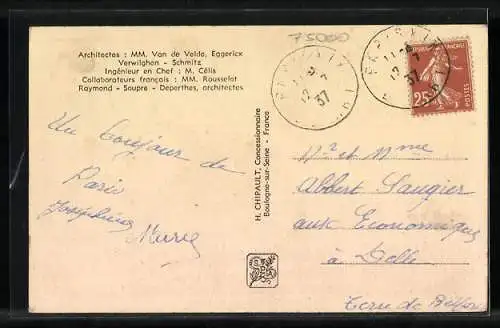 75000
Architectes : MM. Van de Velde, Eggericx
Verwilghen - Schmitz
Ingénieur en Chef : M. Célis
Collaborateurs français : MM. Rousselot
Raymond - Soupre - Deperthes, architectes
H. CHIPAULT, Concessionnaire
Boulogne-sur-Seine - France
37
37
25
Un bonjour de
Paris
Mr et Mme
Albert Saugier
aux Economiques
à Delle
Terre de Belfort